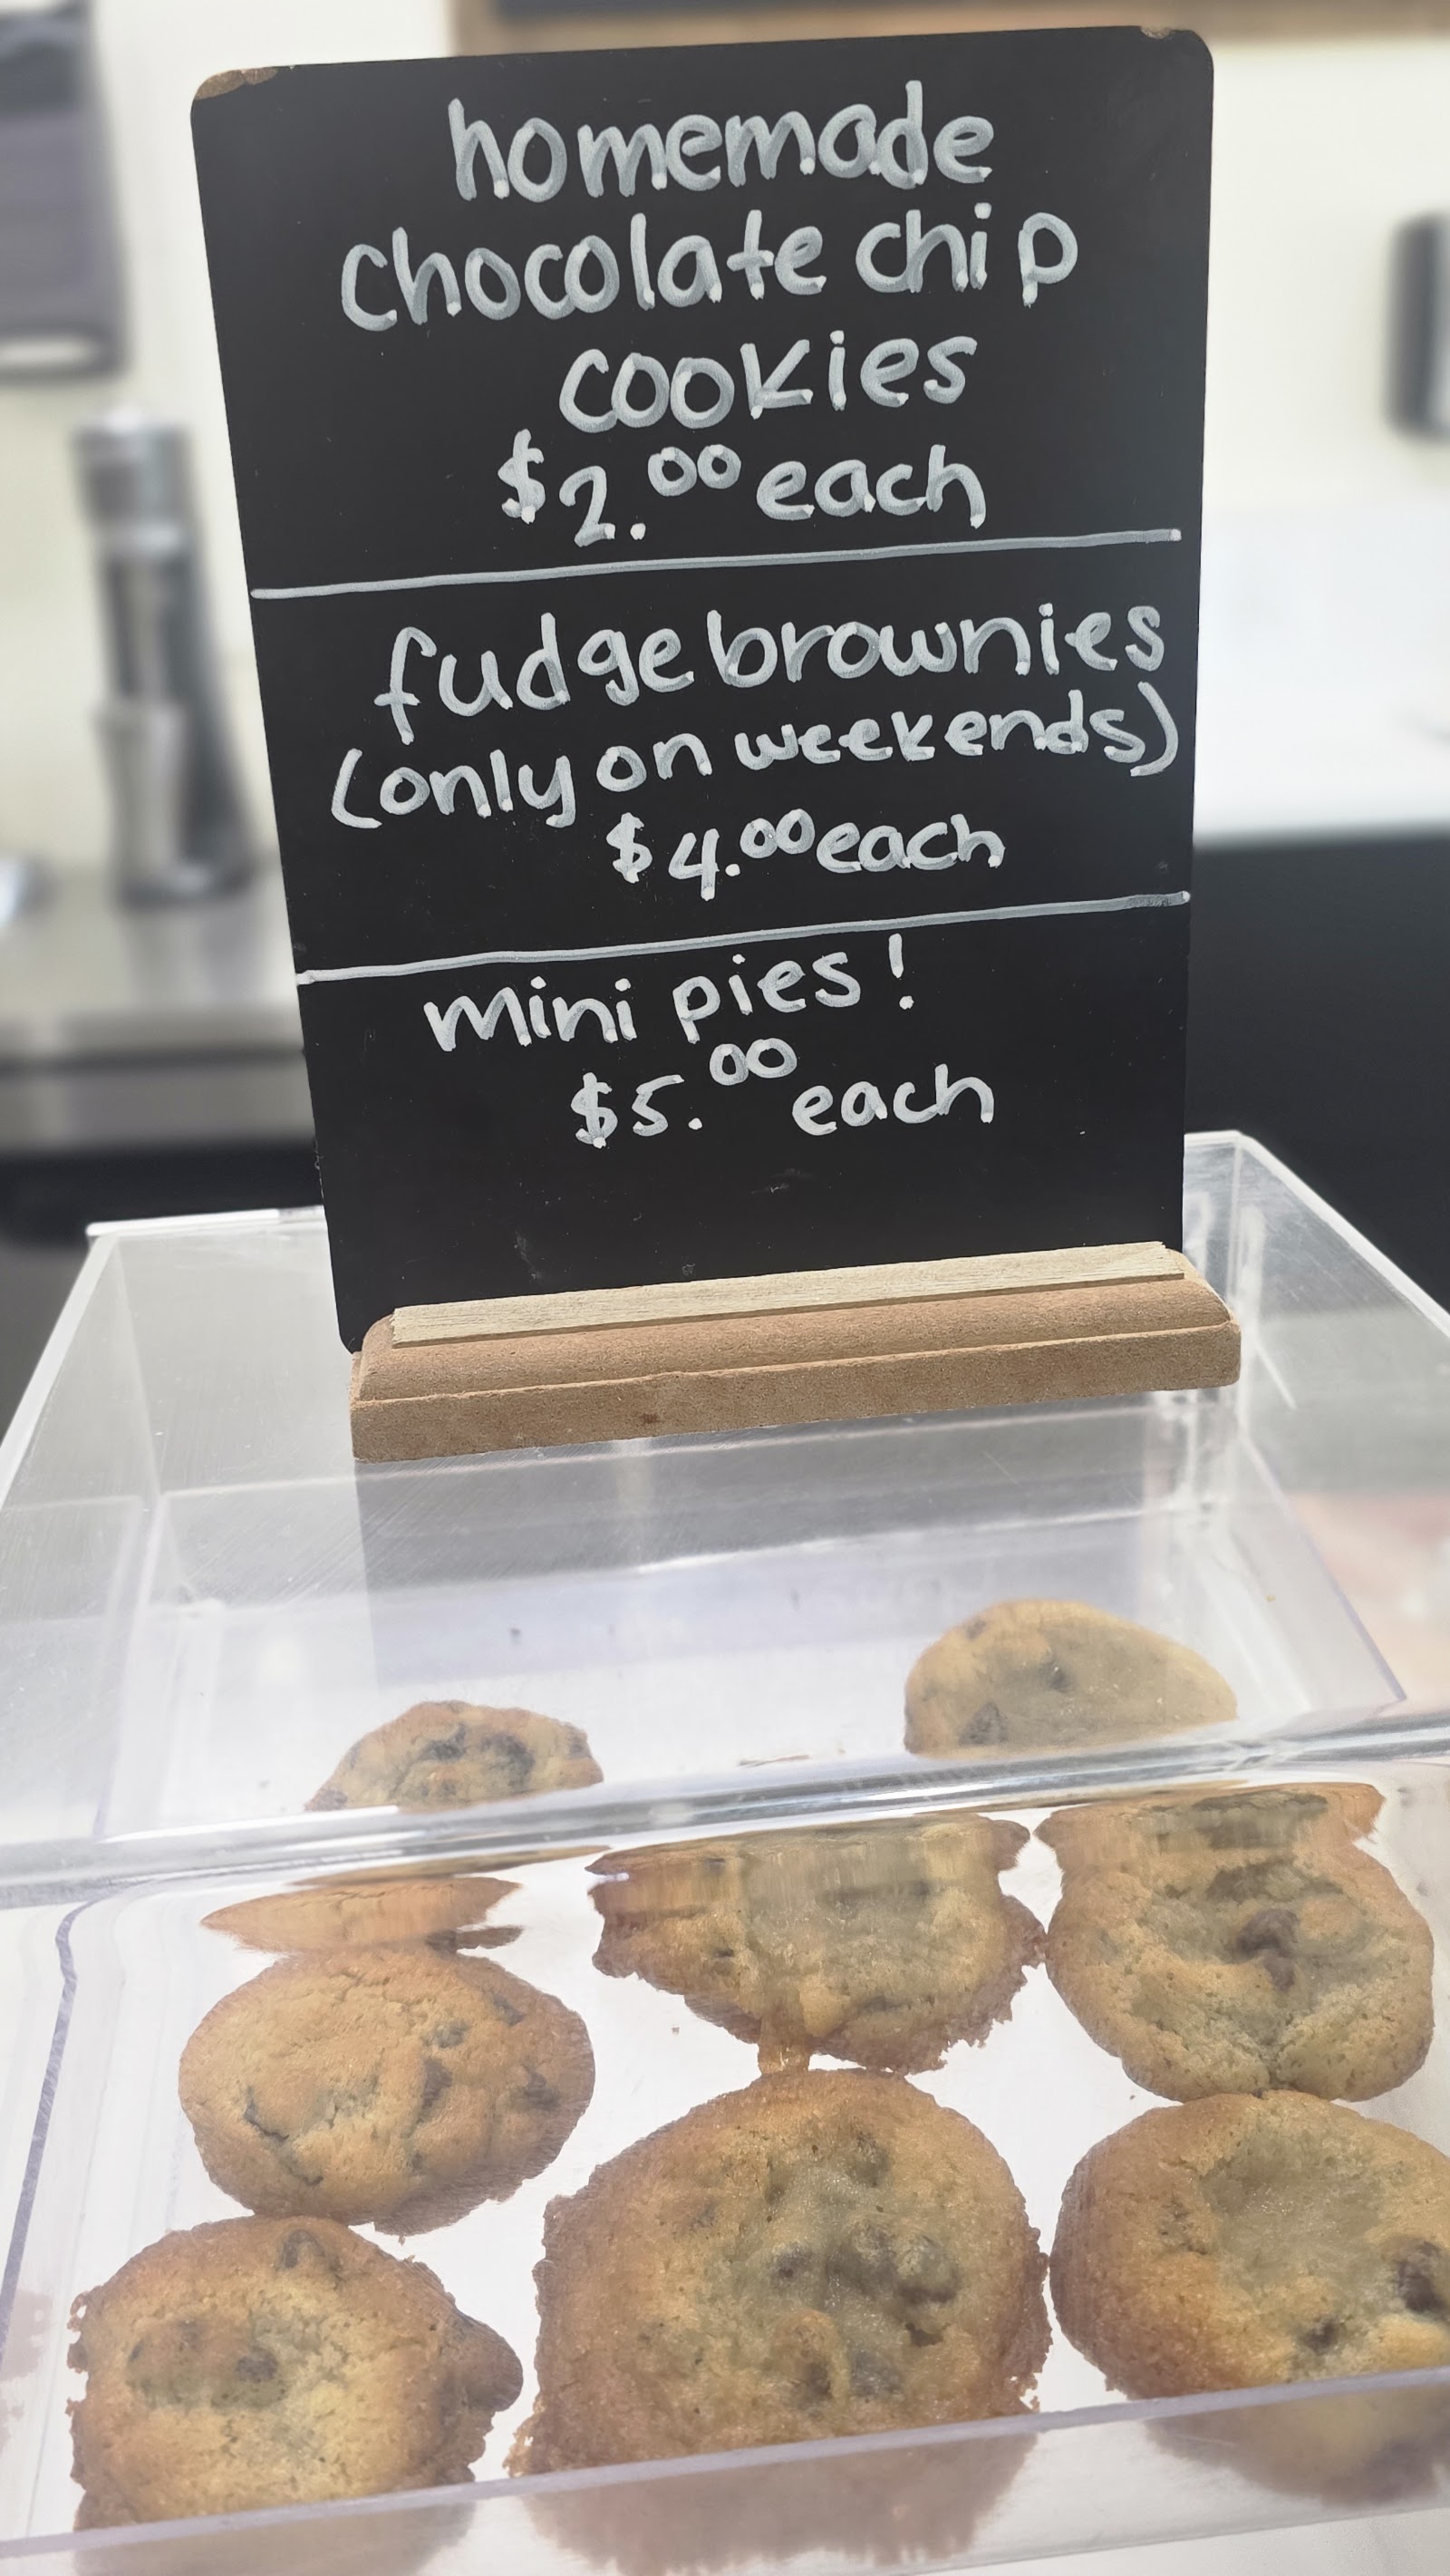 homemade
chocolate chip
cookies
$2.00 each
fudge brownies
(only on weekends)
$4.00 each
mini pies!
$5.00 each